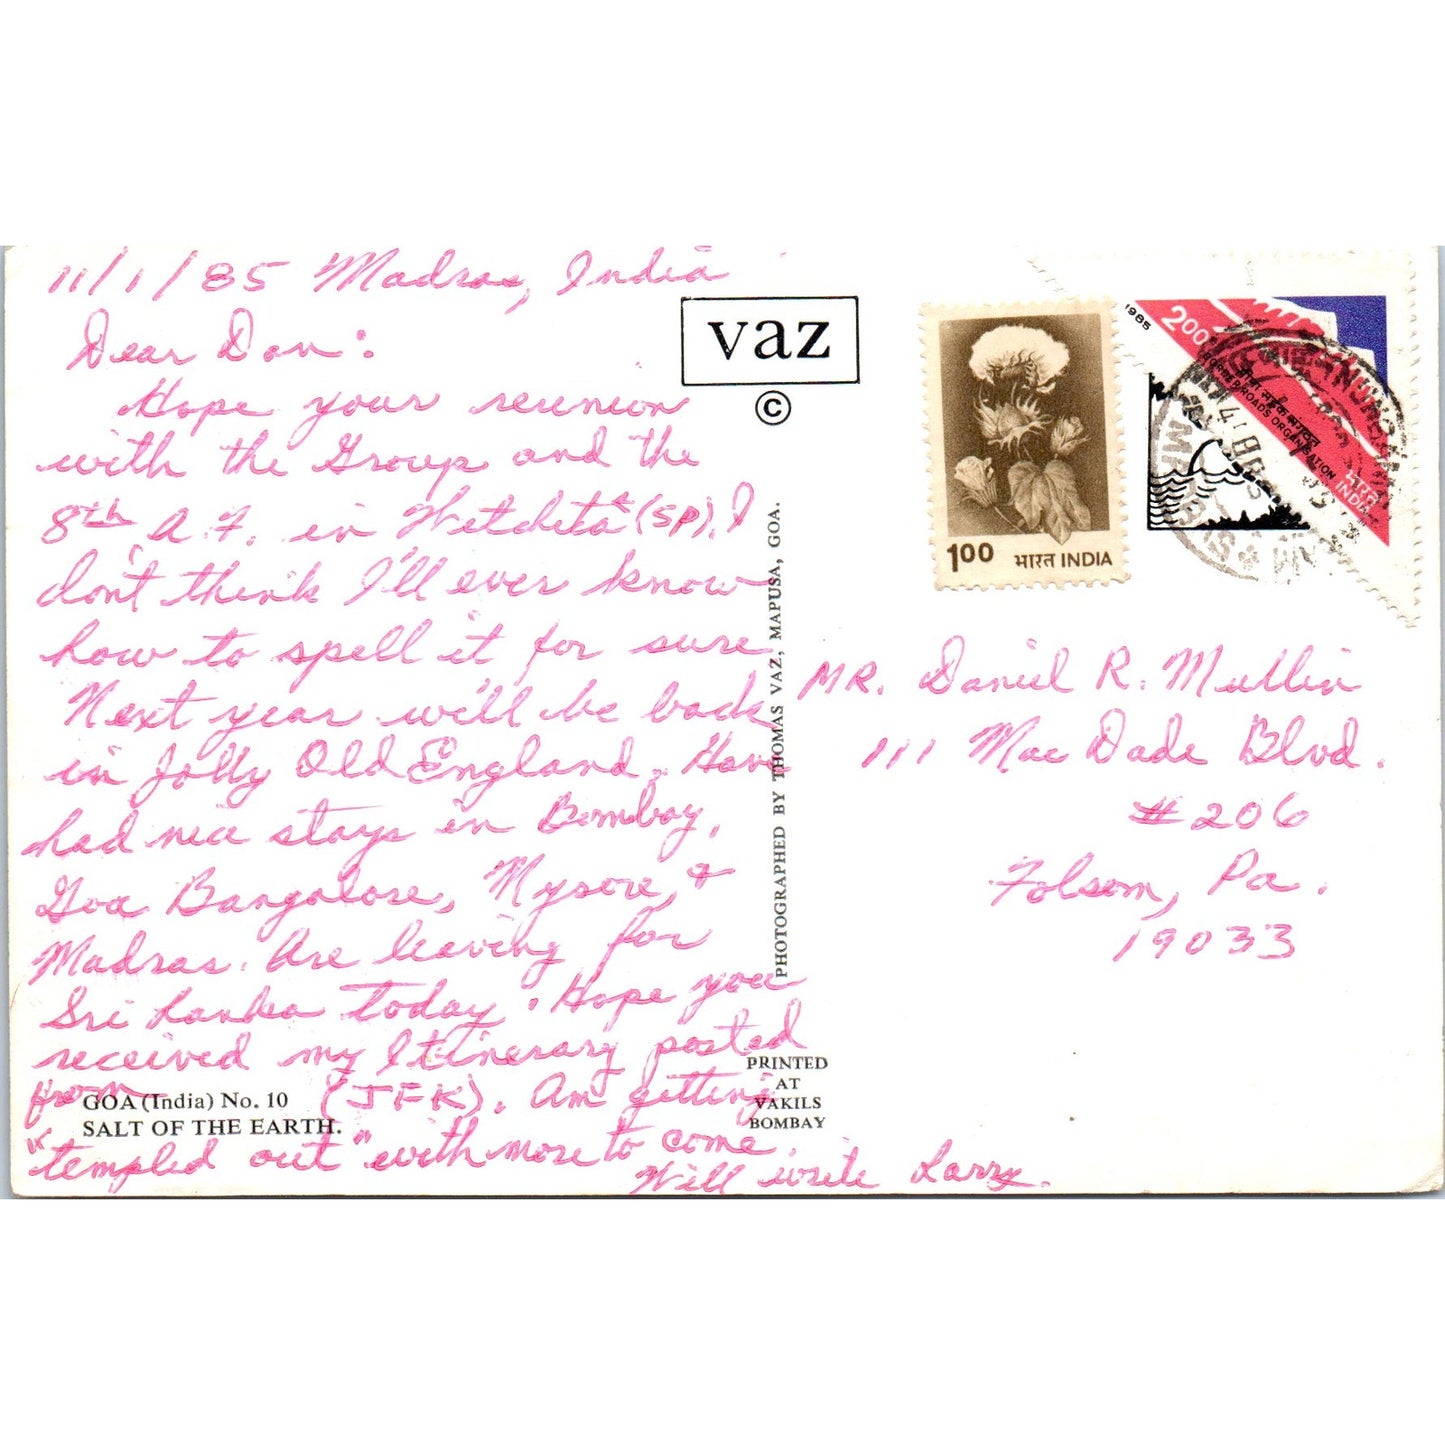 11/1/85 Madras, India
Dear Dan:
Hope your reunion
with the Group and the
8th A.F. in Witchita (SP). I
don't think I'll ever know
how to spell it for sure
Next year will be back
in Jolly Old England. Have
had nice stays in Bombay,
Goa Bangalore, Mysore, &
Madras. Are leaving for
Sri Lanka today. Hope you
received my Itinerary posted
from (JFK). Am getting
"templed out" with more to come.
Will write Larry.
GOA (India) No. 10
SALT OF THE EARTH.
vaz
©
PHOTOGRAPHED BY THOMAS VAZ, MAPUSA, GOA.
PRINTED
AT
VAKILS
BOMBAY
1.00 भारत INDIA
1985
200
सीमा सड़क संगठन
BORDER ROADS ORGANISATION
भारत
INDIA
MR. Daniel R. Mullin
111 Mac Dade Blvd.
#206
Folsom, Pa.
19033